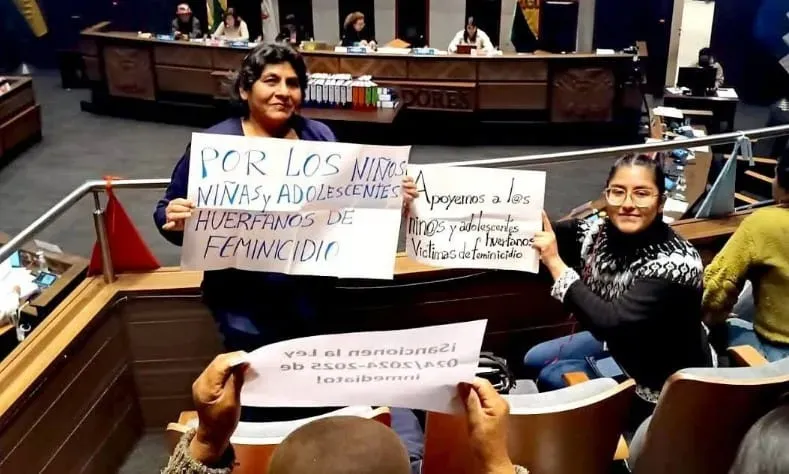 DORES
POR LOS NIÑOS,
NIÑAS y ADOLESCENTES
HUERFANOS DE
FEMINICIDIO
Apoyemos a l@s
niñ@s y adolescentes
huerfan@s
Victimas de feminicidio
¡Sancionen la Ley
074/2024-2025 de
inmediato!